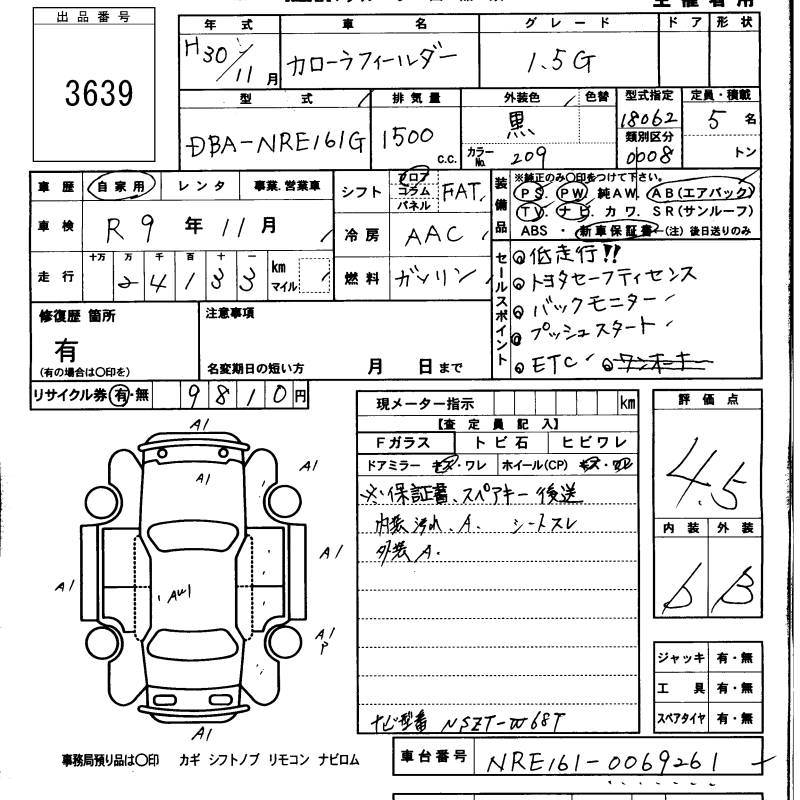 出品番号
3639
年式 車名 グレード ドア 形状
H30/11月 カローラフィールダー 1.5G
型式 排気量 外装色 色替 型式指定 定員・積載
DBA-NRE161G 1500 c.c. 黒 カラーNo. 209 18062 類別区分 0008 5名 トン
車歴 自家用 レンタ 事業.営業車 シフト フロア コラム パネル FAT
車検 R9年11月 冷房 AAC
走行 十万 万 千 百 十 一 24133 km マイル 燃料 ガソリン
装備品
※純正のみ〇印をつけて下さい。
PS. PW. 純AW. AB(エアバック)
TV. ナビ. カワ. SR(サンルーフ)
ABS ・ 新車保証書 ←(注) 後日送りのみ
セールスポイント
低走行!!
トヨタセーフティセンス
バックモニター
プッシュスタート
ETC ワンオーナー
修復歴 箇所 注意事項
有
(有の場合は〇印を) 名変期日の短い方 月 日まで
リサイクル券 有・無 9810円
現メーター指示 km
【査定員記入】
Fガラス トビ石 ヒビワレ
ドアミラー キズ・ワレ ホイール(CP) キズ・ワレ
※保証書、スペアキー後送
内装 汚れ、A. シートスレ
外装 A.
ナビ型番 NSZT-W68T
評価点
4.5
内装 外装
b B
ジャッキ 有・無
工具 有・無
スペアタイヤ 有・無
A1
A1
A1
A1
A1
AW1
A1
P
A1
事務局預り品は〇印 カギ シフトノブ リモコン ナビロム
車台番号 NRE161-0069261